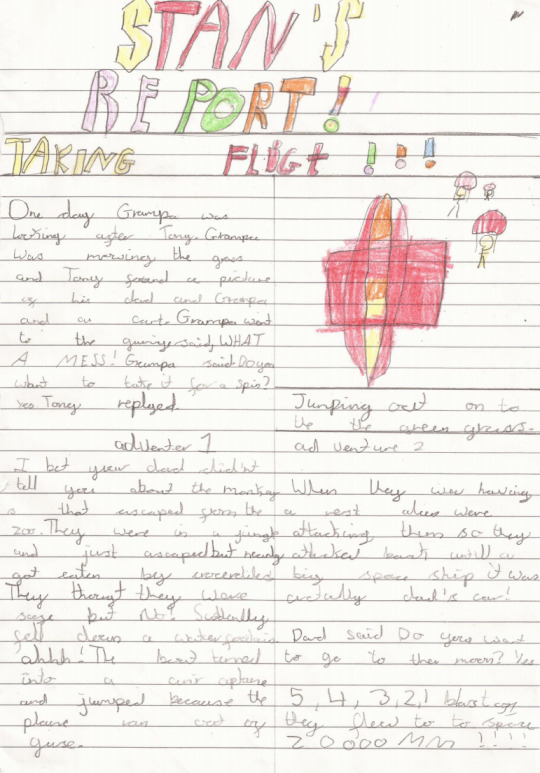 STAN'S
REPORT!
TAKING FLIGt !!!
One day Grampa was
looking after Tony. Grampa
was mowing the grass
and Tony found a picture
of his dad and Grampa
and a cart. Grampa went
to the said, WHAT
A MESS! Grampa said Do you
want to take it for a spin?
yes Tony replyed.
adventer 1
I bet your dad didn't
tell you about the monkey
s that escaped from the
zoo. They were in a jungle
and just ascaped but nearly
got eaten by crocerdiles
They thorght they were
saye but No! Suddenly
fell down a waterfountain
ahhh! The boat turned
into a air aplane
and jumped because the
plane ran out of
guse.
Jumping out on to
the the green grass.
ad venture 2
When they wer having
a rest aliens were
attacking them so they
attacked back untill a
big space ship it was
actully dad's car!
Dad said Do you want
to go to the moon? Yes
5, 4, 3, 2, 1 blast off
they flew to to space
20000 MM !!!!